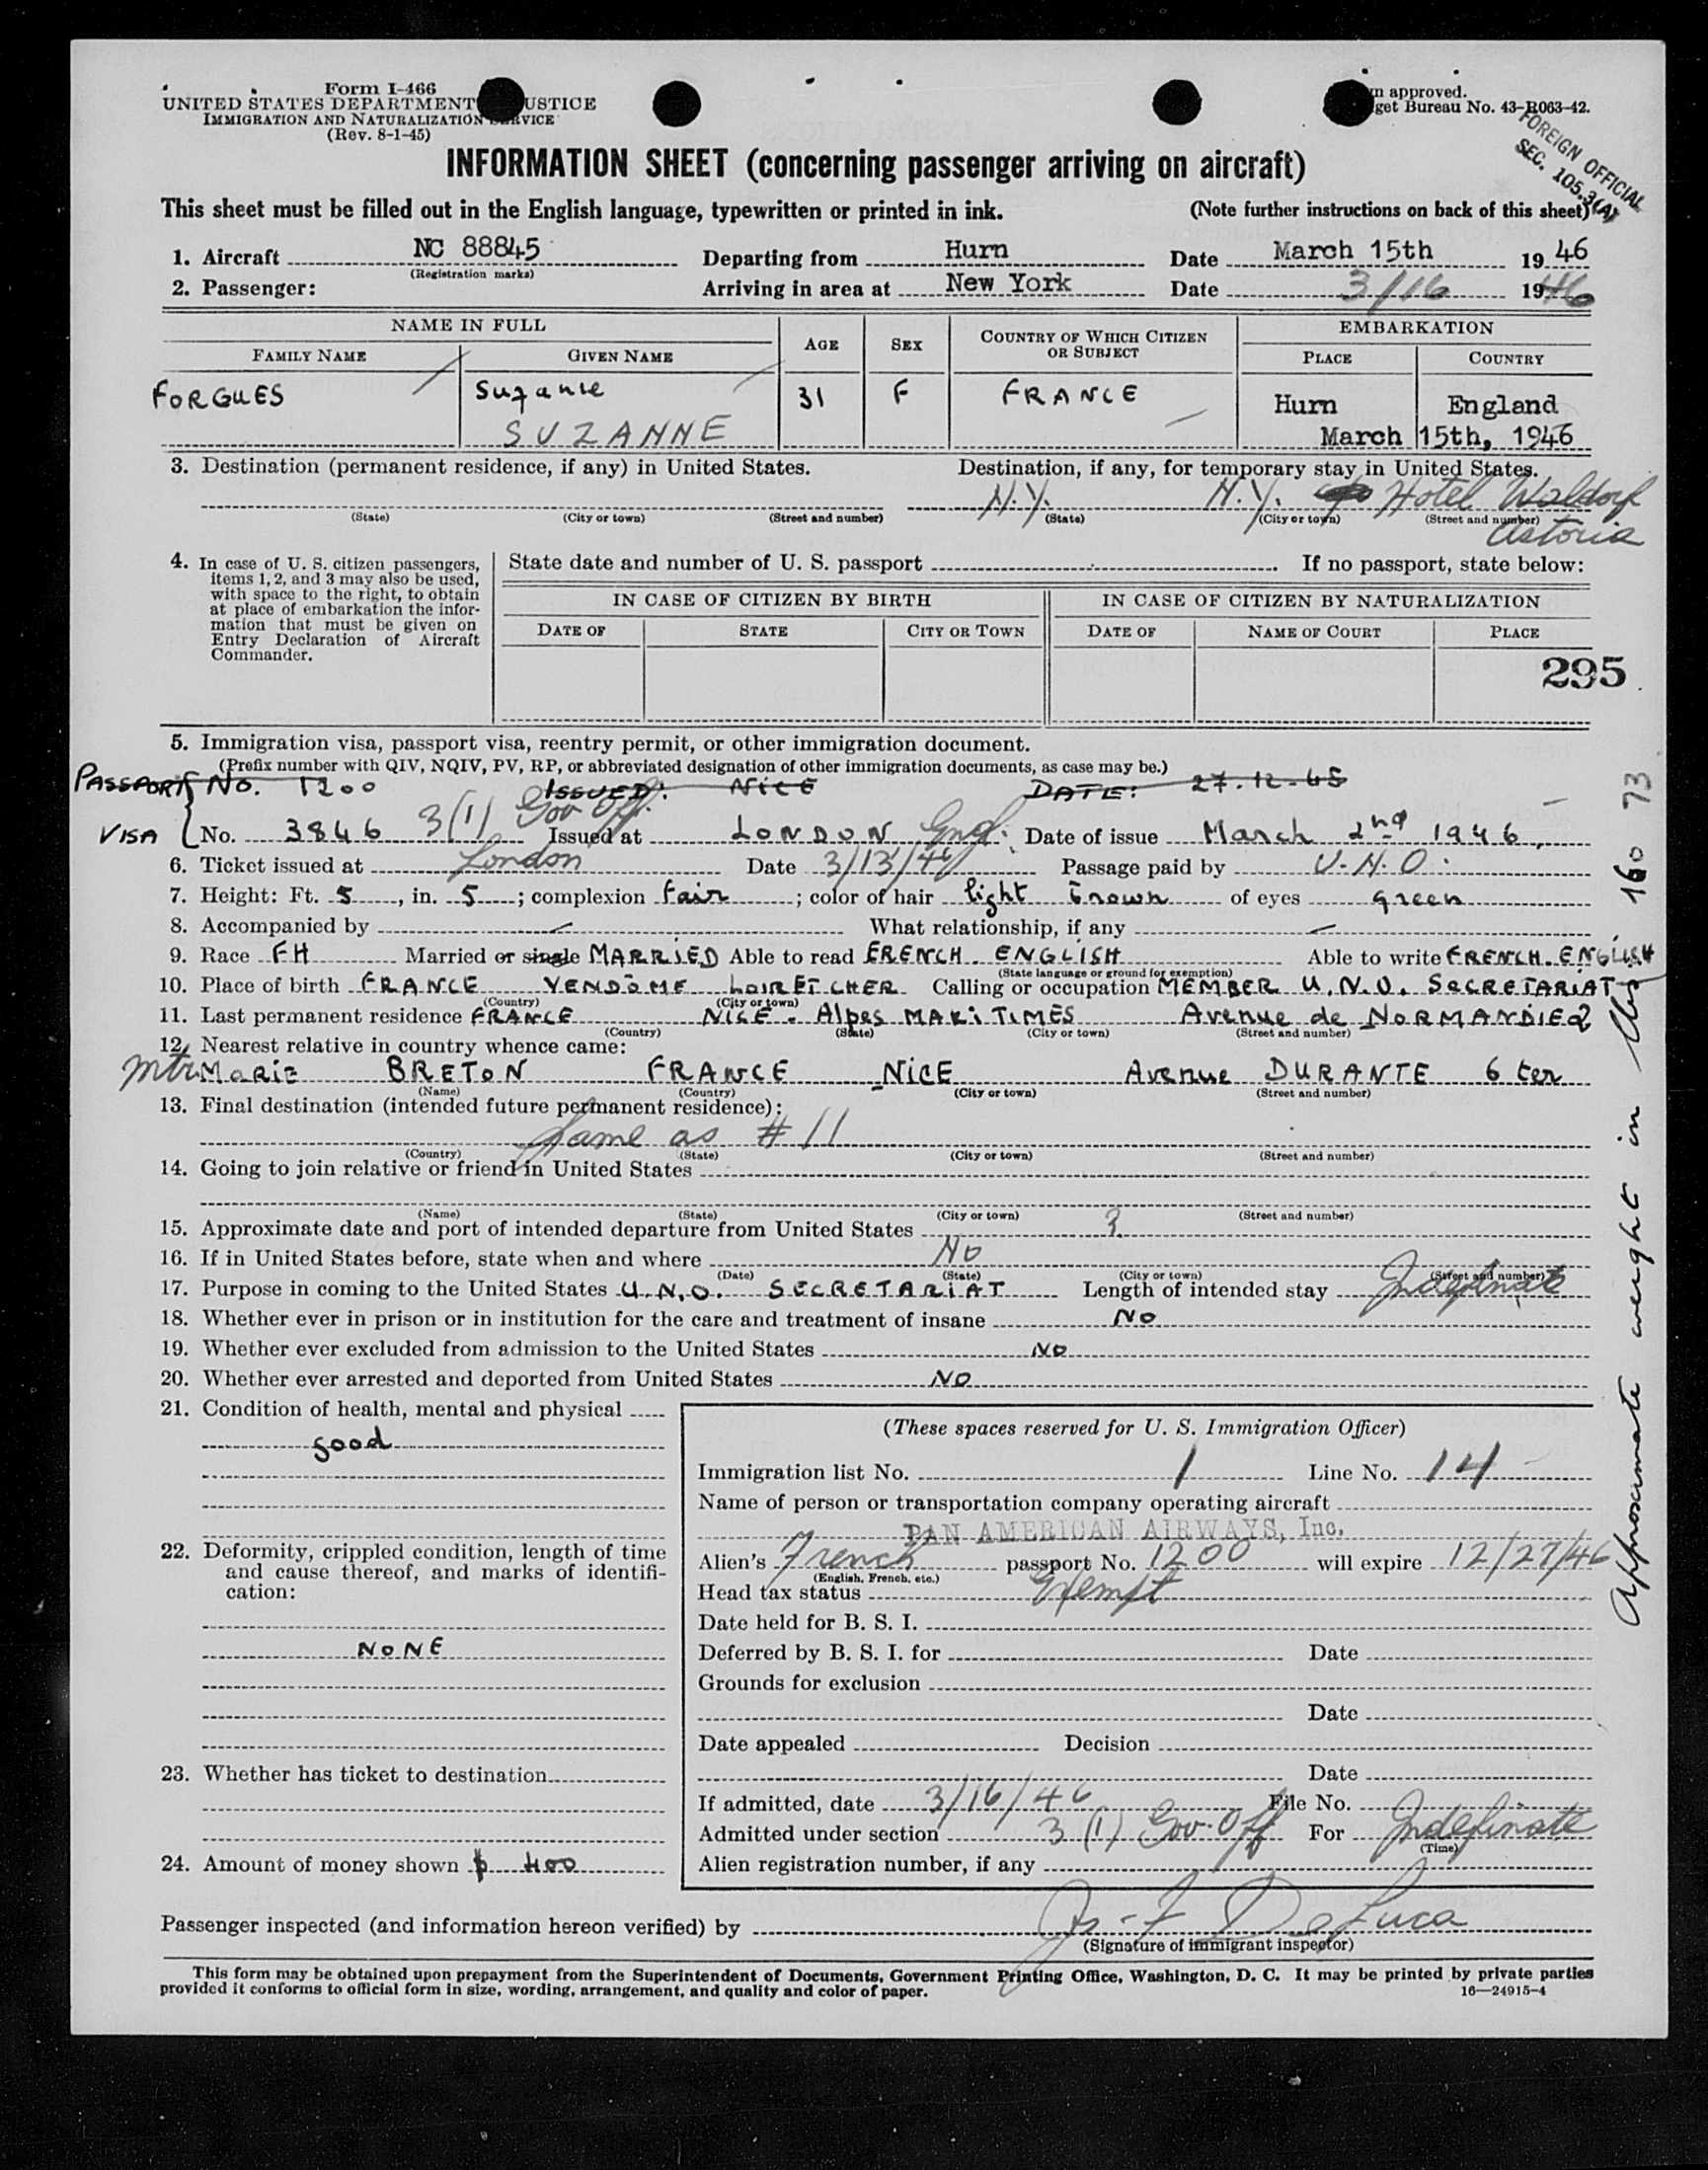 Form I-466
UNITED STATES DEPARTMENT USTICE
IMMIGRATION AND NATURALIZATION SERVICE
(Rev. 8-1-45)
n approved.
get Bureau No. 43-R063-42.
FOREIGN OFFICIAL
SEC. 105.3(A)
INFORMATION SHEET (concerning passenger arriving on aircraft)
This sheet must be filled out in the English language, typewritten or printed in ink. (Note further instructions on back of this sheet)
1. Aircraft NC 88845 Departing from Hurn Date March 15th 19 46
(Registration marks)
2. Passenger: Arriving in area at New York Date 3/16 1946
NAME IN FULL AGE SEX COUNTRY OF WHICH CITIZEN OR SUBJECT EMBARKATION
FAMILY NAME GIVEN NAME PLACE COUNTRY
FORGUES Suzanne 31 F FRANCE Hurn England
SUZANNE March 15th, 1946
3. Destination (permanent residence, if any) in United States. Destination, if any, for temporary stay in United States.
N.Y. N.Y. Hotel Waldorf
(State) (City or town) (Street and number) (State) (City or town) (Street and number)
Astoria
4. In case of U. S. citizen passengers, items 1, 2, and 3 may also be used, with space to the right, to obtain at place of embarkation the information that must be given on Entry Declaration of Aircraft Commander.
State date and number of U. S. passport If no passport, state below:
IN CASE OF CITIZEN BY BIRTH IN CASE OF CITIZEN BY NATURALIZATION
DATE OF STATE CITY OR TOWN DATE OF NAME OF COURT PLACE
295
5. Immigration visa, passport visa, reentry permit, or other immigration document.
(Prefix number with QIV, NQIV, PV, RP, or abbreviated designation of other immigration documents, as case may be.)
PASSPORT No. 1200 ISSUED: NICE DATE: 27.12.45
VISA No. 3846 3(1) Gov Off. Issued at LONDON Engl. Date of issue March 2nd 1946
6. Ticket issued at London Date 3/13/46 Passage paid by U.N.O.
7. Height: Ft. 5, in. 5; complexion fair; color of hair light brown of eyes green
8. Accompanied by — What relationship, if any —
9. Race FH Married or single MARRIED Able to read FRENCH. ENGLISH Able to write FRENCH. ENGLISH
(State language or ground for exemption)
10. Place of birth FRANCE VENDÔME LOIR ET CHER Calling or occupation MEMBER U.N.O. SECRETARIAT
(Country) (City or town)
11. Last permanent residence FRANCE NICE. Alpes MARITIMES Avenue de NORMANDIE 2
(Country) (State) (City or town) (Street and number)
12. Nearest relative in country whence came:
Mtr. MARIE BRETON FRANCE NICE Avenue DURANTE 6 ter
(Name) (Country) (City or town) (Street and number)
13. Final destination (intended future permanent residence):
Same as # 11
(Country) (State) (City or town) (Street and number)
14. Going to join relative or friend in United States
(Name) (State) (City or town) (Street and number)
15. Approximate date and port of intended departure from United States ?
16. If in United States before, state when and where NO
(Date) (State) (City or town) (Street and number)
17. Purpose in coming to the United States U.N.O. SECRETARIAT Length of intended stay Indefinate
18. Whether ever in prison or in institution for the care and treatment of insane NO
19. Whether ever excluded from admission to the United States NO
20. Whether ever arrested and deported from United States NO
21. Condition of health, mental and physical
good
22. Deformity, crippled condition, length of time and cause thereof, and marks of identification:
NONE
23. Whether has ticket to destination
24. Amount of money shown $ 400
(These spaces reserved for U. S. Immigration Officer)
Immigration list No. 1 Line No. 14
Name of person or transportation company operating aircraft
PAN AMERICAN AIRWAYS, Inc.
Alien's French passport No. 1200 will expire 12/27/46
(English, French, etc.)
Head tax status Exempt
Date held for B. S. I.
Deferred by B. S. I. for Date
Grounds for exclusion
Date
Date appealed Decision
Date
If admitted, date 3/16/46 File No.
Admitted under section 3 (1) Gov. Off For Indefinate
(Time)
Alien registration number, if any
Passenger inspected (and information hereon verified) by F DeLuca
(Signature of immigrant inspector)
This form may be obtained upon prepayment from the Superintendent of Documents, Government Printing Office, Washington, D. C. It may be printed by private parties
provided it conforms to official form in size, wording, arrangement, and quality and color of paper. 16—24915-4
Approximate weight in lbs 160 73